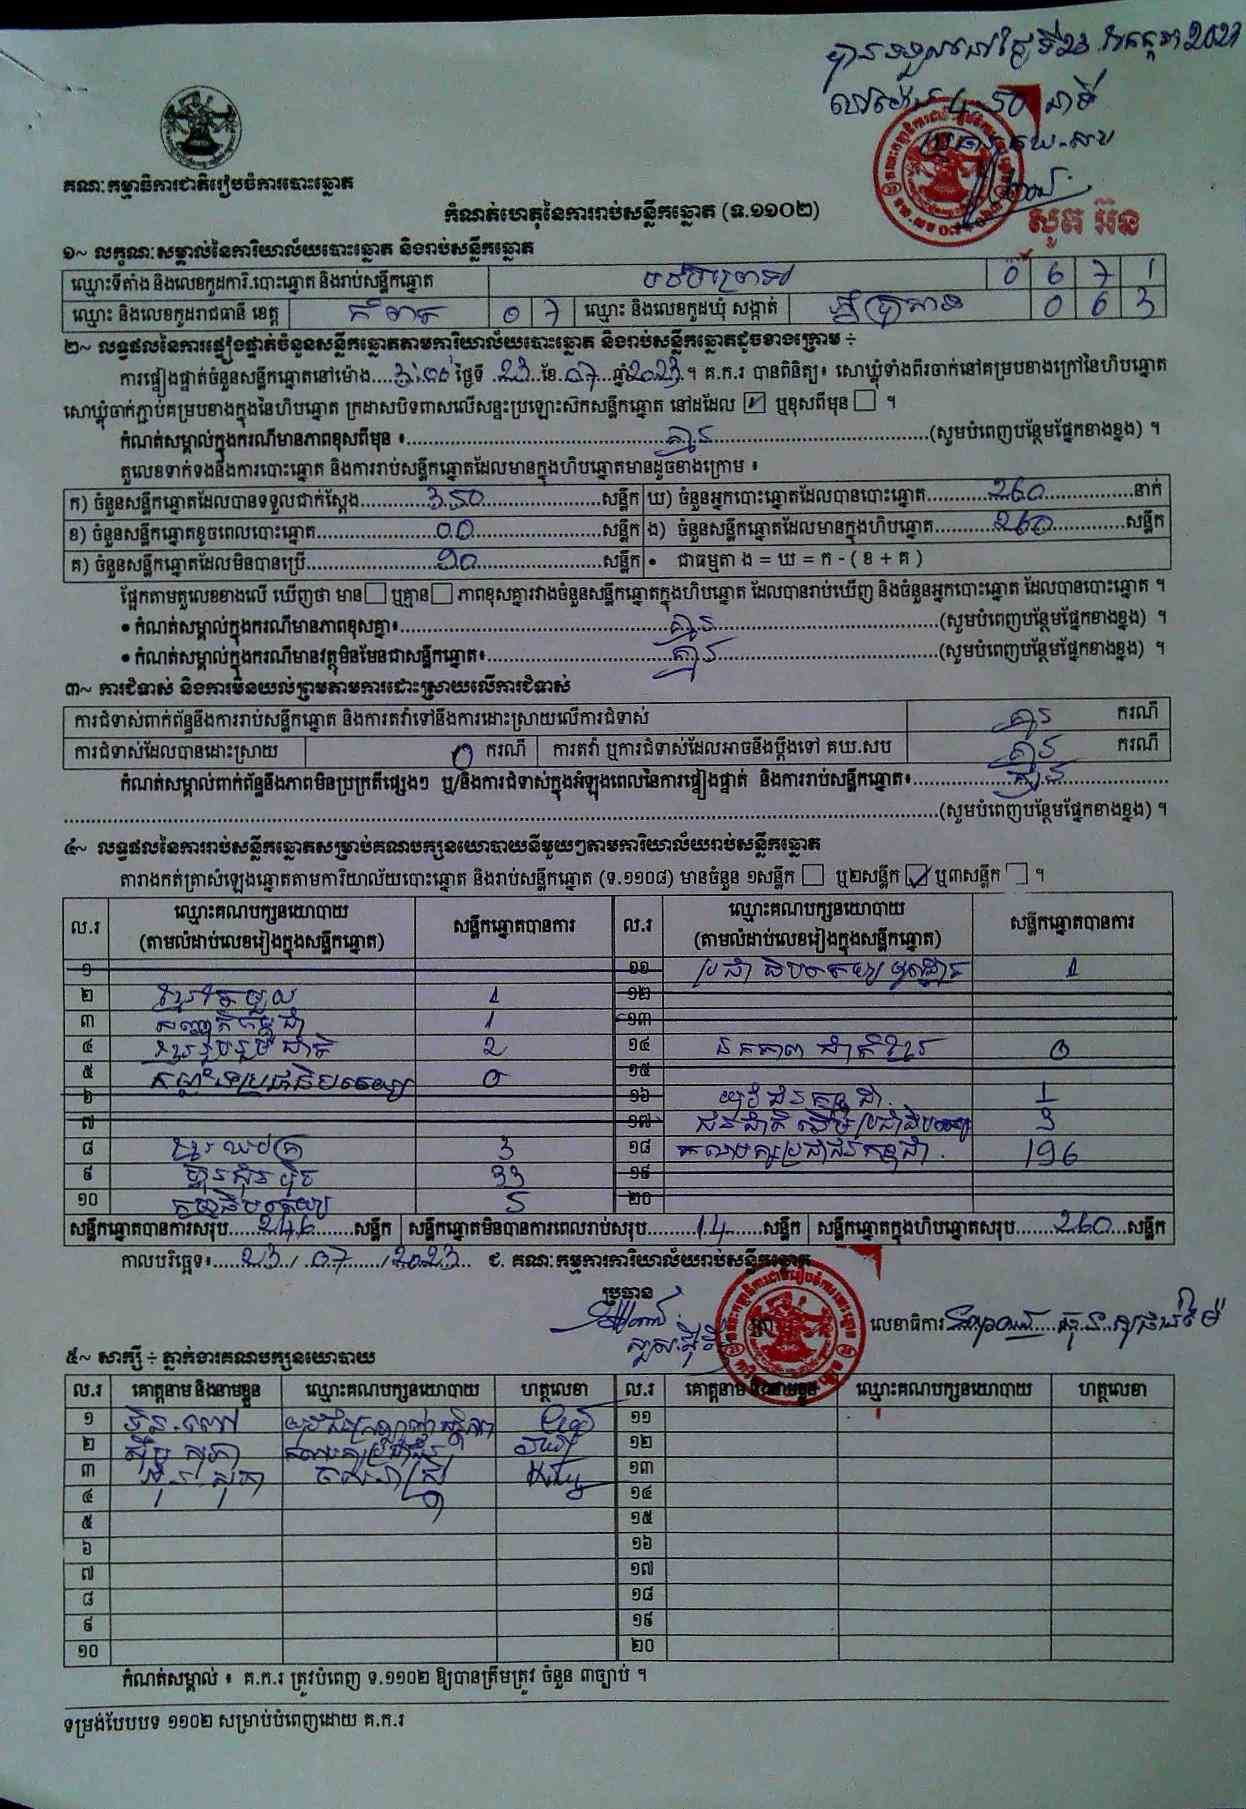 គណៈកម្មាធិការជាតិរៀបចំការបោះឆ្នោត
កំណត់ហេតុនៃការរាប់សន្លឹកឆ្នោត (ទ.១១០២)
សូត អ៊ន
១~ លក្ខណៈសម្គាល់នៃការិយាល័យបោះឆ្នោត និងរាប់សន្លឹកឆ្នោត
ឈ្មោះទីតាំង និងលេខកូដការិ.បោះឆ្នោត និងរាប់សន្លឹកឆ្នោត 0 6 7 1
ឈ្មោះ និងលេខកូដរាជធានី ខេត្ត កំពត 0 7 ឈ្មោះ និងលេខកូដឃុំ សង្កាត់ 0 6 3
២~ លទ្ធផលនៃការផ្ទៀងផ្ទាត់ចំនួនសន្លឹកឆ្នោតតាមការិយាល័យបោះឆ្នោត និងរាប់សន្លឹកឆ្នោតដូចខាងក្រោម ÷
ការផ្ទៀងផ្ទាត់ចំនួនសន្លឹកឆ្នោតនៅម៉ោង....3:00 ថ្ងៃទី .23. ខែ.07...ឆ្នាំ2023.។ គ.ក.រ បានពិនិត្យ៖ សោឃ្លុំទាំងពីរចាក់នៅគម្របខាងក្រៅនៃហិបឆ្នោត
សោឃ្លុំចាក់ភ្ជាប់គម្របខាងក្នុងនៃហិបឆ្នោត ក្រដាសបិទពាសលើសន្ទះប្រឡោះស៊កសន្លឹកឆ្នោត នៅដដែល ☑ ឬខុសពីមុន ☐ ។
កំណត់សម្គាល់ក្នុងករណីមានភាពខុសពីមុន ៖ គ្មាន (សូមបំពេញបន្ថែមផ្នែកខាងខ្នង) ។
តួលេខទាក់ទងនឹងការបោះឆ្នោត និងការរាប់សន្លឹកឆ្នោតដែលមានក្នុងហិបឆ្នោតមានដូចខាងក្រោម ៖
ក) ចំនួនសន្លឹកឆ្នោតដែលបានទទួលជាក់ស្តែង 350 សន្លឹក ឃ) ចំនួនអ្នកបោះឆ្នោតដែលបានបោះឆ្នោត 260 នាក់
ខ) ចំនួនសន្លឹកឆ្នោតខូចពេលបោះឆ្នោត 00 សន្លឹក ង) ចំនួនសន្លឹកឆ្នោតដែលមានក្នុងហិបឆ្នោត 260 សន្លឹក
គ) ចំនួនសន្លឹកឆ្នោតដែលមិនបានប្រើ 90 សន្លឹក • ជាធម្មតា ង = ឃ = ក - ( ខ + គ )
ផ្អែកតាមតួលេខខាងលើ ឃើញថា មាន ☐ ឬគ្មាន ☐ ភាពខុសគ្នារវាងចំនួនសន្លឹកឆ្នោតក្នុងហិបឆ្នោត ដែលបានរាប់ឃើញ និងចំនួនអ្នកបោះឆ្នោត ដែលបានបោះឆ្នោត ។
• កំណត់សម្គាល់ក្នុងករណីមានភាពខុសគ្នា៖ គ្មាន (សូមបំពេញបន្ថែមផ្នែកខាងខ្នង) ។
• កំណត់សម្គាល់ក្នុងករណីមានវត្ថុមិនមែនជាសន្លឹកឆ្នោត៖ គ្មាន (សូមបំពេញបន្ថែមផ្នែកខាងខ្នង) ។
៣~ ការជំទាស់ និងការមិនយល់ព្រមតាមការដោះស្រាយលើការជំទាស់
ការជំទាស់ពាក់ព័ន្ធនឹងការរាប់សន្លឹកឆ្នោត និងការតវ៉ាទៅនឹងការដោះស្រាយលើការជំទាស់ គ្មាន ករណី
ការជំទាស់ដែលបានដោះស្រាយ 0 ករណី ការតវ៉ា ឬការជំទាស់ដែលអាចនឹងប្តឹងទៅ គឃ.សប គ្មាន ករណី
កំណត់សម្គាល់ពាក់ព័ន្ធនឹងភាពមិនប្រក្រតីផ្សេងៗ ឬ/និងការជំទាស់ក្នុងអំឡុងពេលនៃការផ្ទៀងផ្ទាត់ និងការរាប់សន្លឹកឆ្នោត៖ គ្មាន
(សូមបំពេញបន្ថែមផ្នែកខាងខ្នង) ។
៤~ លទ្ធផលនៃការរាប់សន្លឹកឆ្នោតសម្រាប់គណបក្សនយោបាយនីមួយៗតាមការិយាល័យរាប់សន្លឹកឆ្នោត
តារាងកត់ត្រាសំឡេងឆ្នោតតាមការិយាល័យបោះឆ្នោត និងរាប់សន្លឹកឆ្នោត (ទ.១១០៨) មានចំនួន ១សន្លឹក ☐ ឬ២សន្លឹក ☑ ឬ៣សន្លឹក ☐ ។
ល.រ ឈ្មោះគណបក្សនយោបាយ (តាមលំដាប់លេខរៀងក្នុងសន្លឹកឆ្នោត) សន្លឹកឆ្នោតបានការ ល.រ ឈ្មោះគណបក្សនយោបាយ (តាមលំដាប់លេខរៀងក្នុងសន្លឹកឆ្នោត) សន្លឹកឆ្នោតបានការ
១ ១១ 1
២ 1 ១២
៣ 1 ១៣
៤ ខ្មែររួបរួមជាតិ 2 ១៤ ឯកភាពជាតិខ្មែរ 0
៥ កម្លាំងប្រជាធិបតេយ្យ 0 ១៥
៦ ១៦ យុវជនកម្ពុជា 1
៧ ១៧ ជនជាតិដើមប្រជាធិបតេយ្យ 3
៨ 3 ១៨ គណបក្សប្រជាជនកម្ពុជា 196
៩ ហ៊្វុនស៊ិនប៉ិច 33 ១៩
១០ 5 ២០
សន្លឹកឆ្នោតបានការសរុប 246 សន្លឹក សន្លឹកឆ្នោតមិនបានការពេលរាប់សរុប 14 សន្លឹក សន្លឹកឆ្នោតក្នុងហិបឆ្នោតសរុប 260 សន្លឹក
កាលបរិច្ឆេទ៖ 23 / 07 / 2023 ជ. គណៈកម្មការការិយាល័យរាប់សន្លឹកឆ្នោត
ប្រធាន
លេខាធិការ
៥~ សាក្សី ÷ ភ្នាក់ងារគណបក្សនយោបាយ
ល.រ គោត្តនាម និងនាមខ្លួន ឈ្មោះគណបក្សនយោបាយ ហត្ថលេខា ល.រ គោត្តនាម និងនាមខ្លួន ឈ្មោះគណបក្សនយោបាយ ហត្ថលេខា
១ ១១
២ ១២
៣ ១៣
៤ ១៤
៥ ១៥
៦ ១៦
៧ ១៧
៨ ១៨
៩ ១៩
១០ ២០
កំណត់សម្គាល់ ៖ គ.ក.រ ត្រូវបំពេញ ទ.១១០២ ឱ្យបានត្រឹមត្រូវ ចំនួន ៣ច្បាប់ ។
ទម្រង់បែបបទ ១១០២ សម្រាប់បំពេញដោយ គ.ក.រ